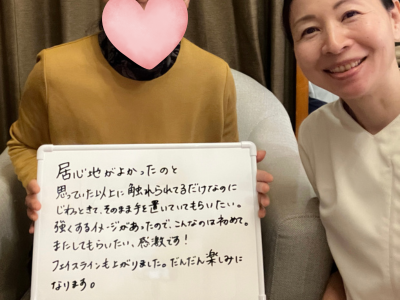 居心地がよかったのと
思っていた以上に触れられてるだけなのに
じわっときて、そのまま手を置いていてもらいたい。
強くするイメージがあったので、こんなのは初めて。
またしてもらいたい、感激です！
フェイスラインも上がりました。だんだん楽しみに
なります。